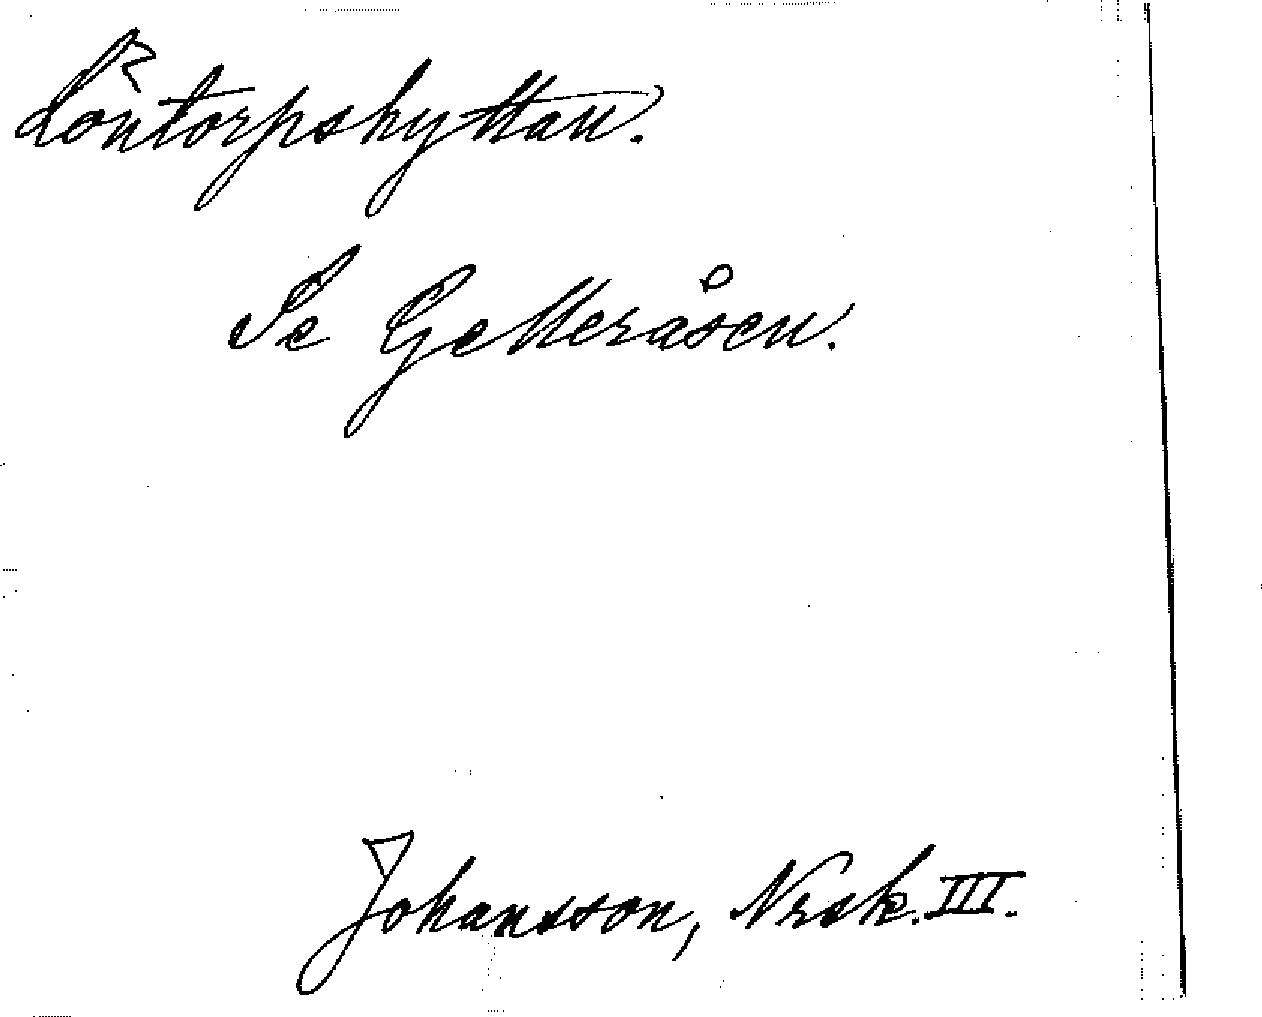 Löntorpshyttan.
Se Getteråsen.
Johansson, Nrsk. III.